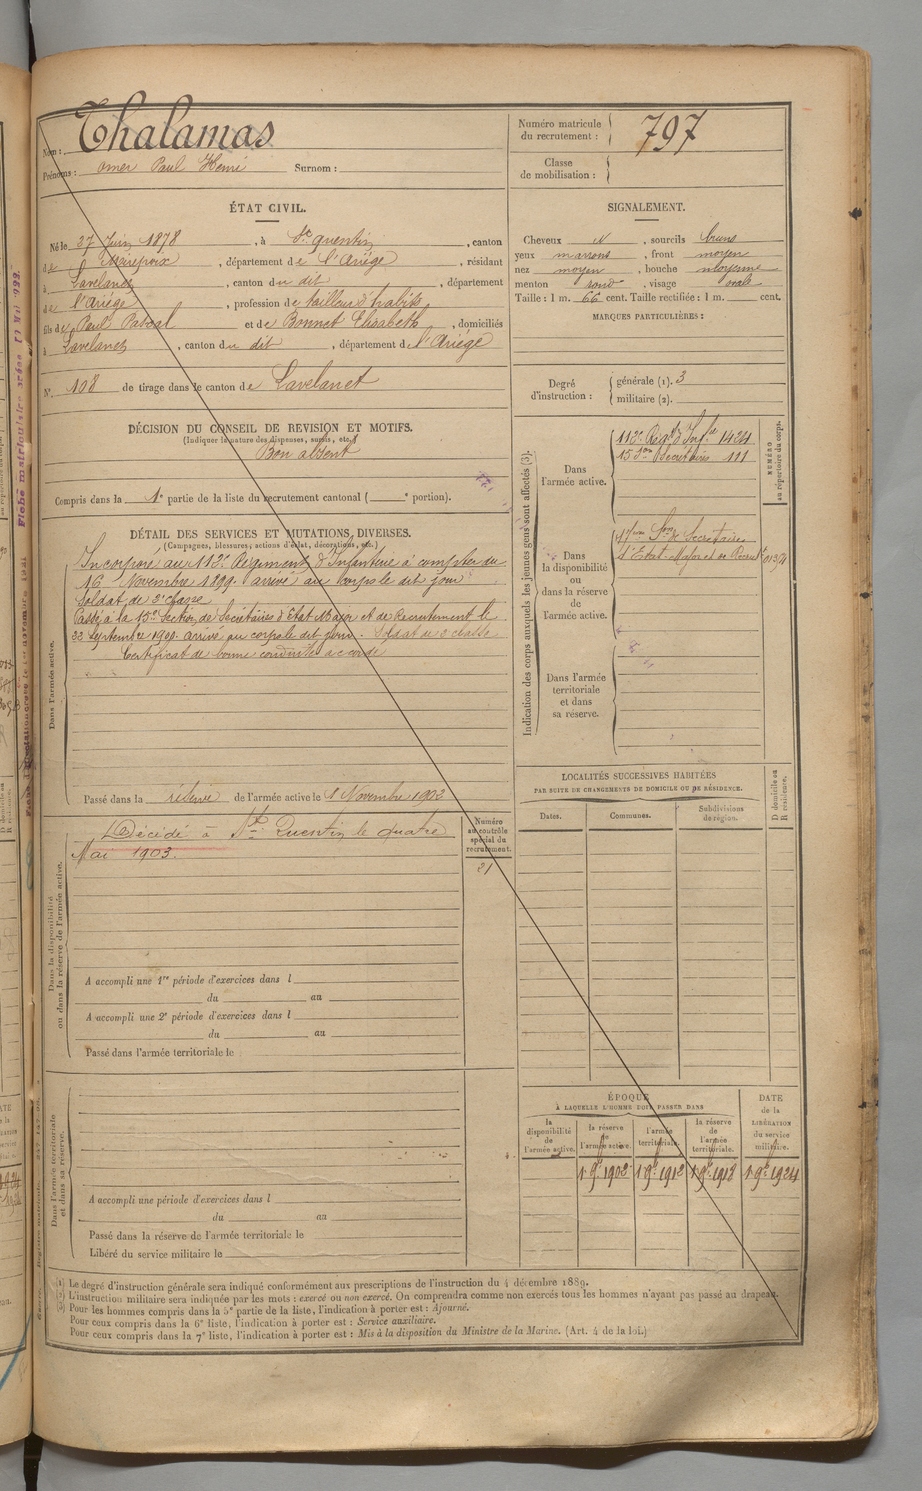 Nom : Thalamas
Prénoms : Omer Paul Henri Surnom :
Numéro matricule du recrutement : 797
Classe de mobilisation :
ÉTAT CIVIL.
Né le 27 Juin 1878, à St Quentin, canton
de Mirepoix, département de l'Ariège, résidant
à Lavelanet, canton du dit, département
de l'Ariège, profession de tailleur d'habits
fils de Paul Pascal et de Bonnet Elisabeth, domiciliés
à Lavelanet, canton du dit, département de l'Ariège
N° 108 de tirage dans le canton de Lavelanet
SIGNALEMENT.
Cheveux N, sourcils bruns
yeux marrons, front moyen
nez moyen, bouche moyenne
menton rond, visage ovale
Taille : 1 m. 66 cent. Taille rectifiée : 1 m. cent.
MARQUES PARTICULIÈRES :
Degré d'instruction : générale (1). 3
militaire (2).
DÉCISION DU CONSEIL DE REVISION ET MOTIFS.
(Indiquer la nature des dispenses, sursis, etc.)
Bon absent
Compris dans la 1e partie de la liste du recrutement cantonal ( e portion).
DÉTAIL DES SERVICES ET MUTATIONS DIVERSES.
(Campagnes, blessures, actions d'éclat, décorations, etc.)
Dans l'armée active.
Incorporé au 112e Régiment d'Infanterie à compter du
16 Novembre 1899 arrivé au corps le dit jour
Soldat de 2e classe
Passé à la 15e Section de Secrétaires d'Etat Major et de Recrutement le
22 Septembre 1900 arrivé au corps le dit jour. Soldat de 2 classe
Certificat de bonne conduite accordé
Passé dans la réserve de l'armée active le 1 Novembre 1902
Indication des corps auxquels les jeunes gens sont affectés (3).
NUMÉRO au répertoire du corps.
Dans l'armée active.
112e Regt d'Infie 1424
15 Son Secrétaires 111
Dans la disponibilité ou dans la réserve de l'armée active.
17me Son de Secrétaires
d'Etat Major et de Recrutt
Dans l'armée territoriale et dans sa réserve.
Dans la disponibilité ou dans la réserve de l'armée active.
Décédé à St Quentin le quatre
Mai 1903.
Numéro au contrôle spécial du recrutement.
21
A accompli une 1re période d'exercices dans l
du au
A accompli une 2e période d'exercices dans l
du au
Passé dans l'armée territoriale le
LOCALITÉS SUCCESSIVES HABITÉES
PAR SUITE DE CHANGEMENTS DE DOMICILE OU DE RÉSIDENCE.
Dates. Communes. Subdivisions de région.
D domicile ou R résidence.
Dans l'armée territoriale et dans sa réserve.
A accompli une période d'exercices dans l
du au
Passé dans la réserve de l'armée territoriale le
Libéré du service militaire le
ÉPOQUE
À LAQUELLE L'HOMME DOIT PASSER DANS
la disponibilité de l'armée active.
la réserve de l'armée active.
l'armée territoriale.
la réserve de l'armée territoriale.
DATE de la LIBÉRATION du service militaire.
1 9e 1902 1 9e 1912 1 9e 1918 1 9e 1924
(1) Le degré d'instruction générale sera indiqué conformément aux prescriptions de l'instruction du 4 décembre 1889.
(2) L'instruction militaire sera indiquée par les mots : exercé ou non exercé. On comprendra comme non exercés tous les hommes n'ayant pas passé au drapeau.
(3) Pour les hommes compris dans la 5e partie de la liste, l'indication à porter est : Ajourné.
Pour ceux compris dans la 6e liste, l'indication à porter est : Service auxiliaire.
Pour ceux compris dans la 7e liste, l'indication à porter est : Mis à la disposition du Ministre de la Marine. (Art. 4 de la loi.)